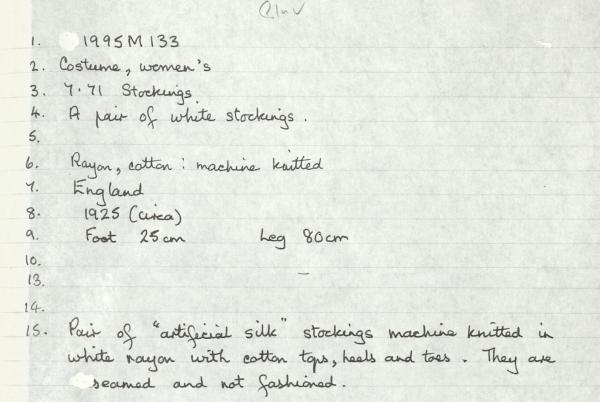 QInV
1. 1995M133
2. Costume, women's
3. 7.71 Stockings
4. A pair of white stockings.
5.
6. Rayon, cotton: machine knitted
7. England
8. 1925 (circa)
9. Foot 25cm Leg 80cm
10.
13. —
14.
15. Pair of "artificial silk" stockings machine knitted in
white rayon with cotton tops, heels and toes. They are
seamed and not fashioned.